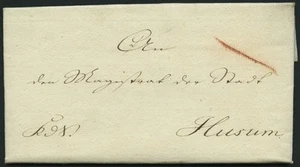 An
den Magistrat der Stadt
Husum